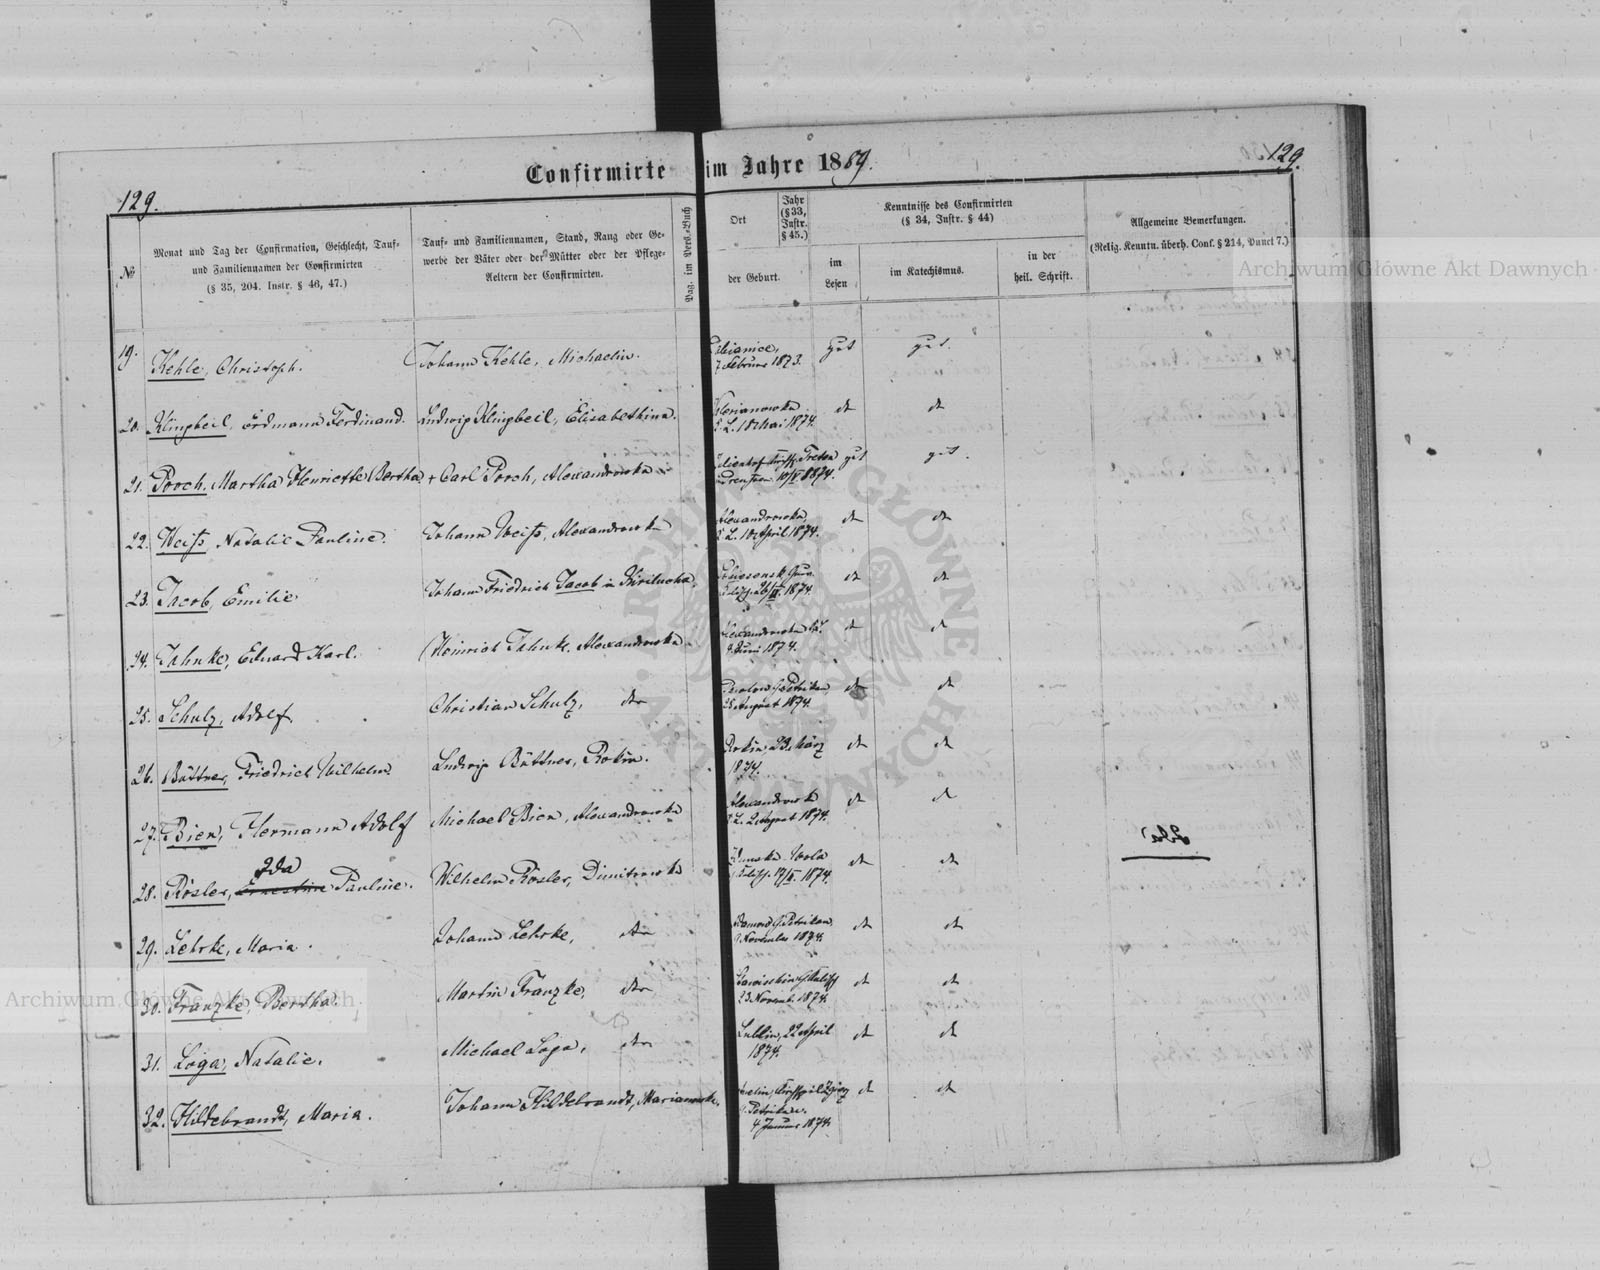 Confirmirte im Jahre 1889.
129.
129.
№
Monat und Tag der Confirmation, Geschlecht, Tauf-
und Familiennamen der Confirmirten
(§ 35, 204. Instr. § 46, 47.)
Tauf- und Familiennamen, Stand, Rang oder Ge-
werbe der Väter oder der Mütter oder der Pflege-
Aeltern der Confirmirten.
Pag. im Pers.-Buch
Ort
Jahr
(§ 33,
Instr.
§ 45.)
der Geburt.
Kenntnisse des Confirmirten
(§ 34, Instr. § 44)
im
Lesen
im Katechismus.
in der
heil. Schrift.
Allgemeine Bemerkungen.
(Relig. Kenntn. überh. Conf. § 214, Punct 7.)
19. Kehle, Christoph. Johann Kehle, Michaelin. Februar 1873. gut gut.
20. Klingbeil, Erdmann Ferdinand. Ludwig Klingbeil, Elisabethina. 18 Mai 1874. dt dt
21. Porch, Martha Henriette Bertha + Carl Porch, Alexandrowka gut gut.
22. Weiss, Natalie Pauline. Johann Weiss, Alexandrowka Alexandrowka, April 1874. dt dt
23. Jacob, Emilie Johann Friedrich Jacob in 1874. dt dt
24. Jahnke, Eduard Karl. Heinrich Jahnke, Alexandrowka Alexandrowka Juni 1874. dt dt
25. Schulz, Adolf. Christian Schulz, dto Petrikau 28 August 1874. dt dt
26. Büttner, Friedrich Wilhelm. Ludwig Büttner, Rokin. Rokin, 23 März 1874. dt dt
27. Bien, Hermann Adolf Michael Bien, Alexandrowka Alexandrowka August 1874. dt dt
28. Rösler, Ernestine Ida Pauline. Wilhelm Rösler, Dimitrowka Zdunska-Wola 1874. dt dt
29. Lehrke, Maria. Johann Lehrke, dto Petrikau November 1874. dt dt
30. Franzke, Bertha. Martin Franzke, dto 23 Novemb. 1874. dt dt
31. Loga, Natalie. Michael Loga, dto Lublin, 22 April 1874. dt dt
32. Hildebrandt, Maria. Johann Hildebrandt, Marianowka. Petrikau. 4 Januar 1874. dt dt
Archiwum Główne Akt Dawnych
Archiwum Główne Akt Dawnych
ARCHIWUM GŁÓWNE AKT DAWNYCH